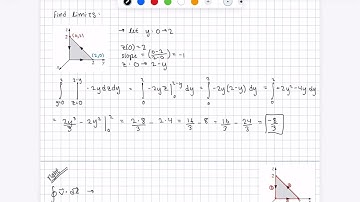 Find limits.
z
2
(0,2)
(2,0)
2
y
→ let y: 0→2
z(0)=2
slope = (0-2)/(2-0) = -1
z: 0→2-y
∫_{y=0}^{2} ∫_{z=0}^{2-y} -2y dz dy = ∫_0^2 -2yz |_0^{2-y} dy = ∫_0^2 -2y(2-y) dy = ∫_0^2 +2y²-4y dy
= 2y³/3 - 2y² |_0^2 = 2·8/3 - 2·4 = 16/3 - 8 = 16/3 - 24/3 = -8/3
∮ v̄ · dl̄ →